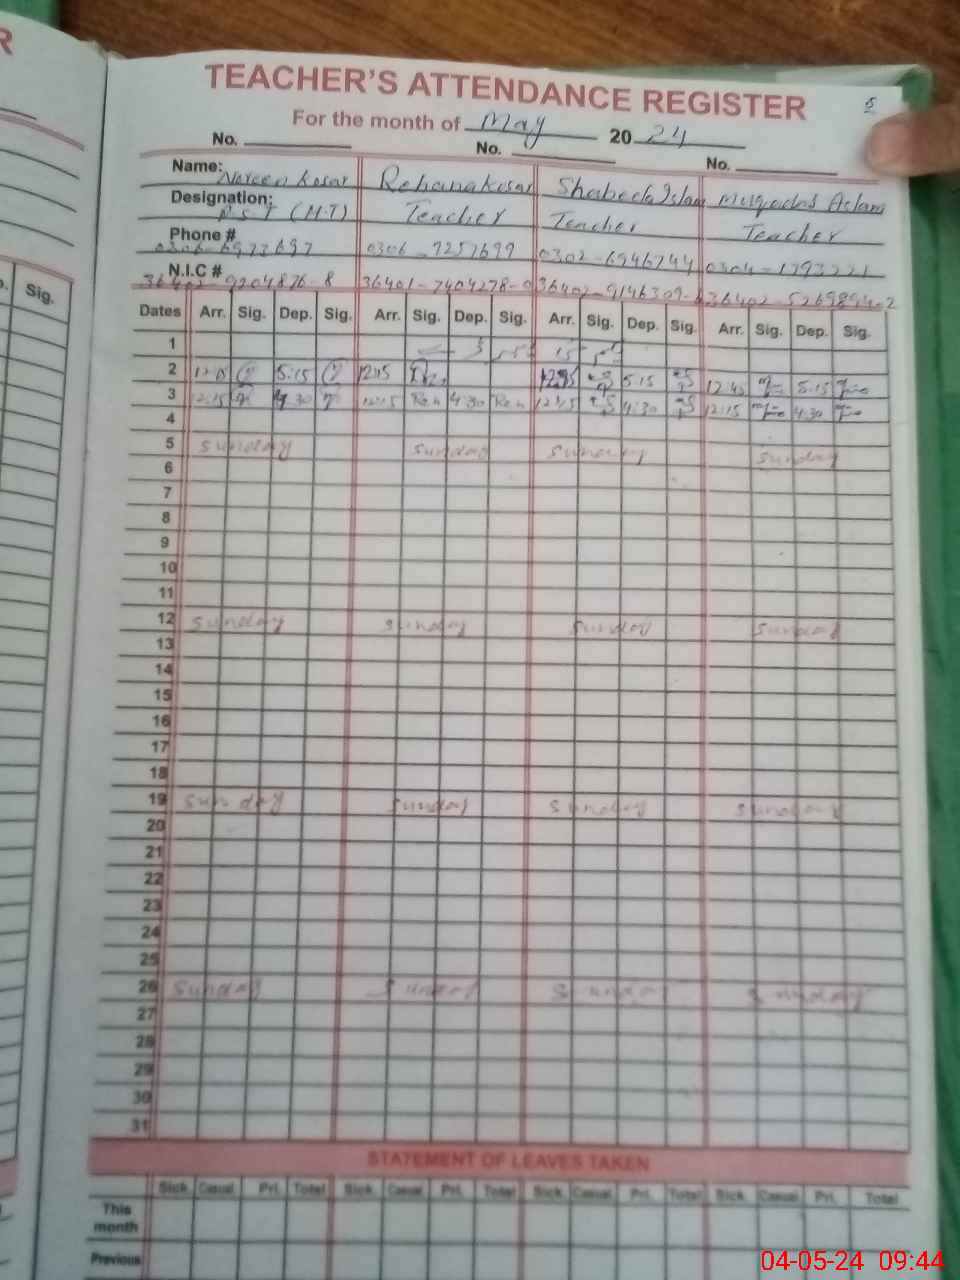 R
TEACHER'S ATTENDANCE REGISTER
5
For the month of May 2024
No. No. No.
Name: Nareen Kosar Rehana kosar Shabeda Islam Muqadas Aslam
Designation: P.S.T (H.T) Teacher Teacher Teacher
Phone # 0306-6973697 0306-7257699 0302-6946744 0304-1793221
N.I.C # 36402-9204876-8 36401-7404278-0 36402-9146309- 36402-5269894-2
Sig.
Dates Arr. Sig. Dep. Sig. Arr. Sig. Dep. Sig. Arr. Sig. Dep. Sig. Arr. Sig. Dep. Sig.
1
2 12:15 5:15 12:15 12:45 5:15 12:45 5:15
3 12:15 4:30 12:15 Reh 4:30 Reh 12:15 4:30 12:15 4:30
4
5 Sunday Sunday Sunday Sunday
6
7
8
9
10
11
12 Sunday Sunday Sunday Sunday
13
14
15
16
17
18
19 Sunday Sunday Sunday Sunday
20
21
22
23
24
25
26 Sunday Sunday Sunday Sunday
27
28
29
30
31
STATEMENT OF LEAVES TAKEN
Sick Casual Pri. Total Sick Casual Pri. Total Sick Casual Pri. Total Sick Casual Pri. Total
This month
Previous
04-05-24 09:44